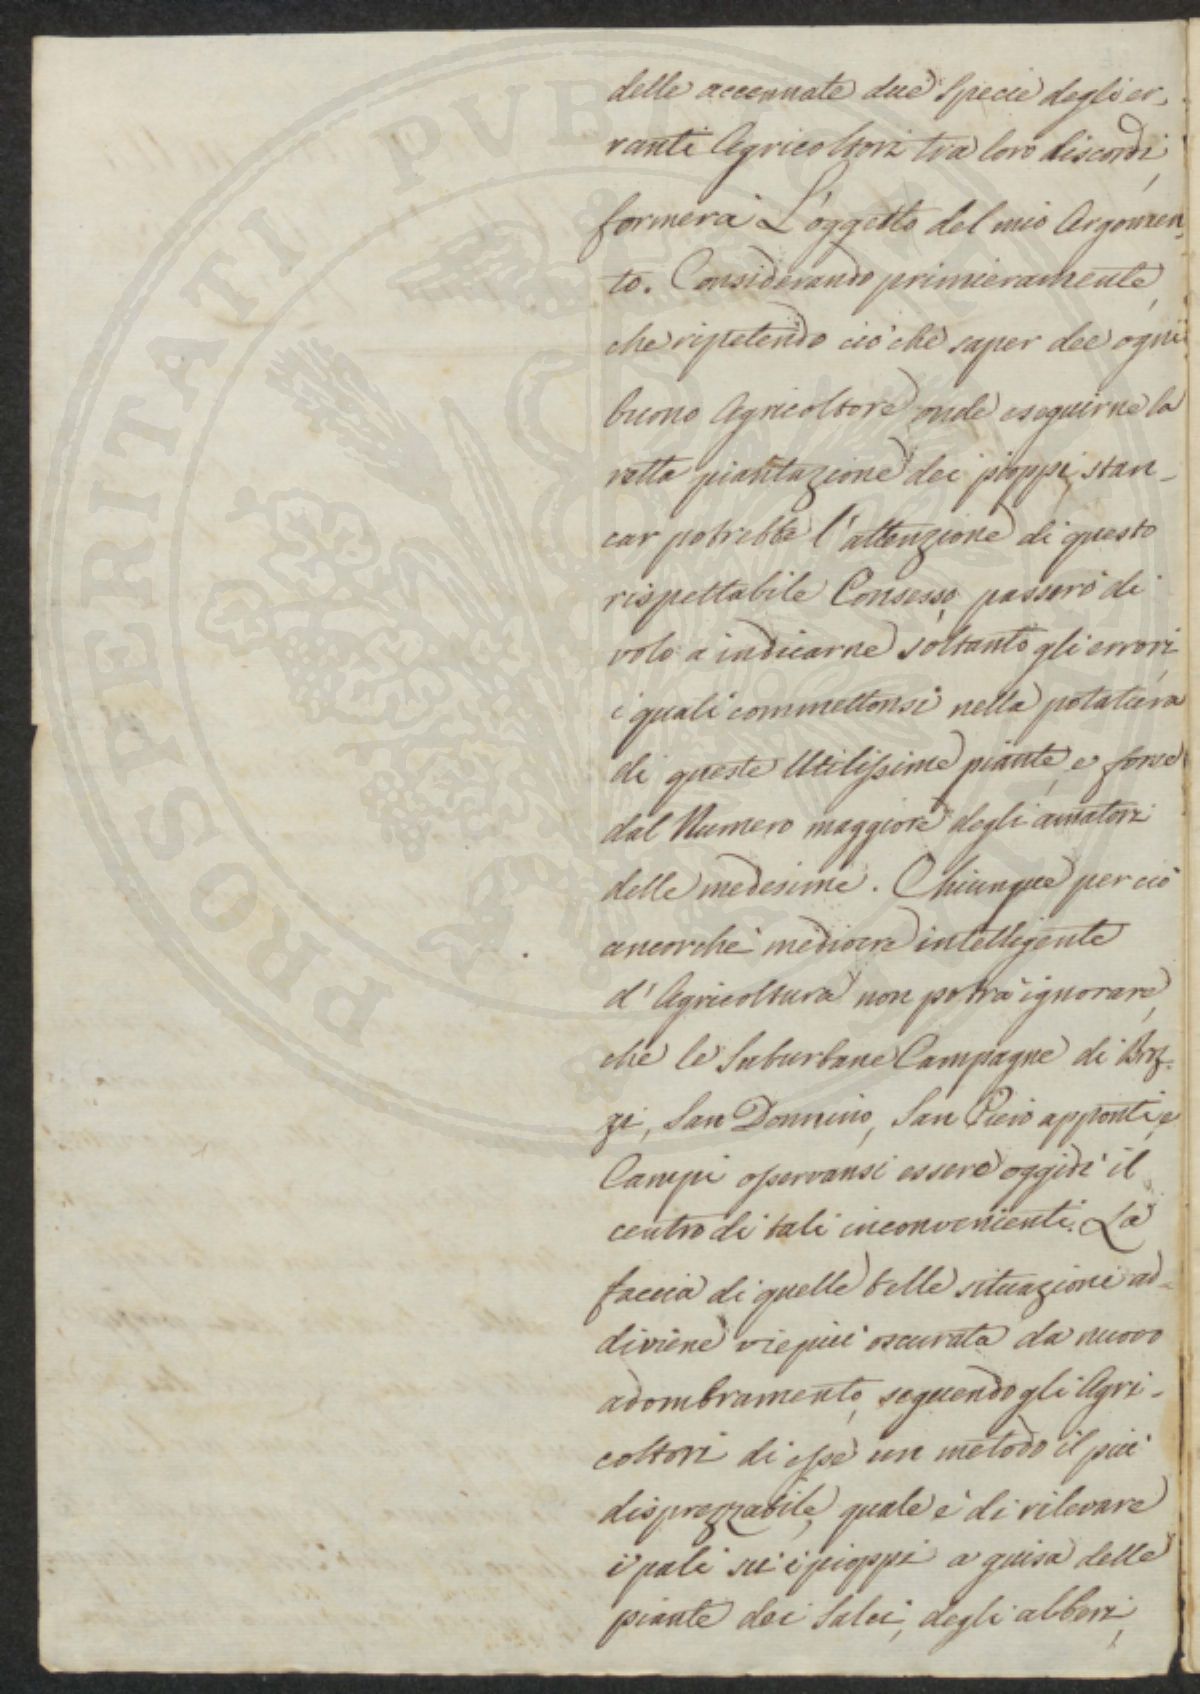 delle accennate due Specie degli er-
ranti Agricoltori tra loro discordi,
formerà L'oggetto del mio Argomen-
to. Considerando primieramente,
che ripetendo ciò che saper dee ogni
buono Agricoltore onde eseguirne la
retta piantazione dei pioppi, stan-
car potrebbe l'attenzione di questo
rispettabile Consesso, passerò di
volo a indicarne soltanto gli errori,
i quali commettonsi nella potatura
di queste Utilissime piante, e forse
dal Numero maggiore degli amatori
delle medesime. Chiunque perciò
ancorchè mediocre intelligente
d'Agricoltura non potrà ignorare,
che le Suburbane Campagne di Broz-
zi, San Donnino, San Piero apponti, e
Campi osservansi essere oggidì il
centro di tali inconvenienti. La
faccia di quelle belle situazioni ad-
diviene viepiù oscurata da nuovo
adombramento, seguendo gli Agri-
coltori di esse un metodo il più
disprezzabile, quale è di rilevare
i pali su i pioppi a guisa delle
piante dei Salci, degli alberi,
PROSPERITATI PUBLICAE